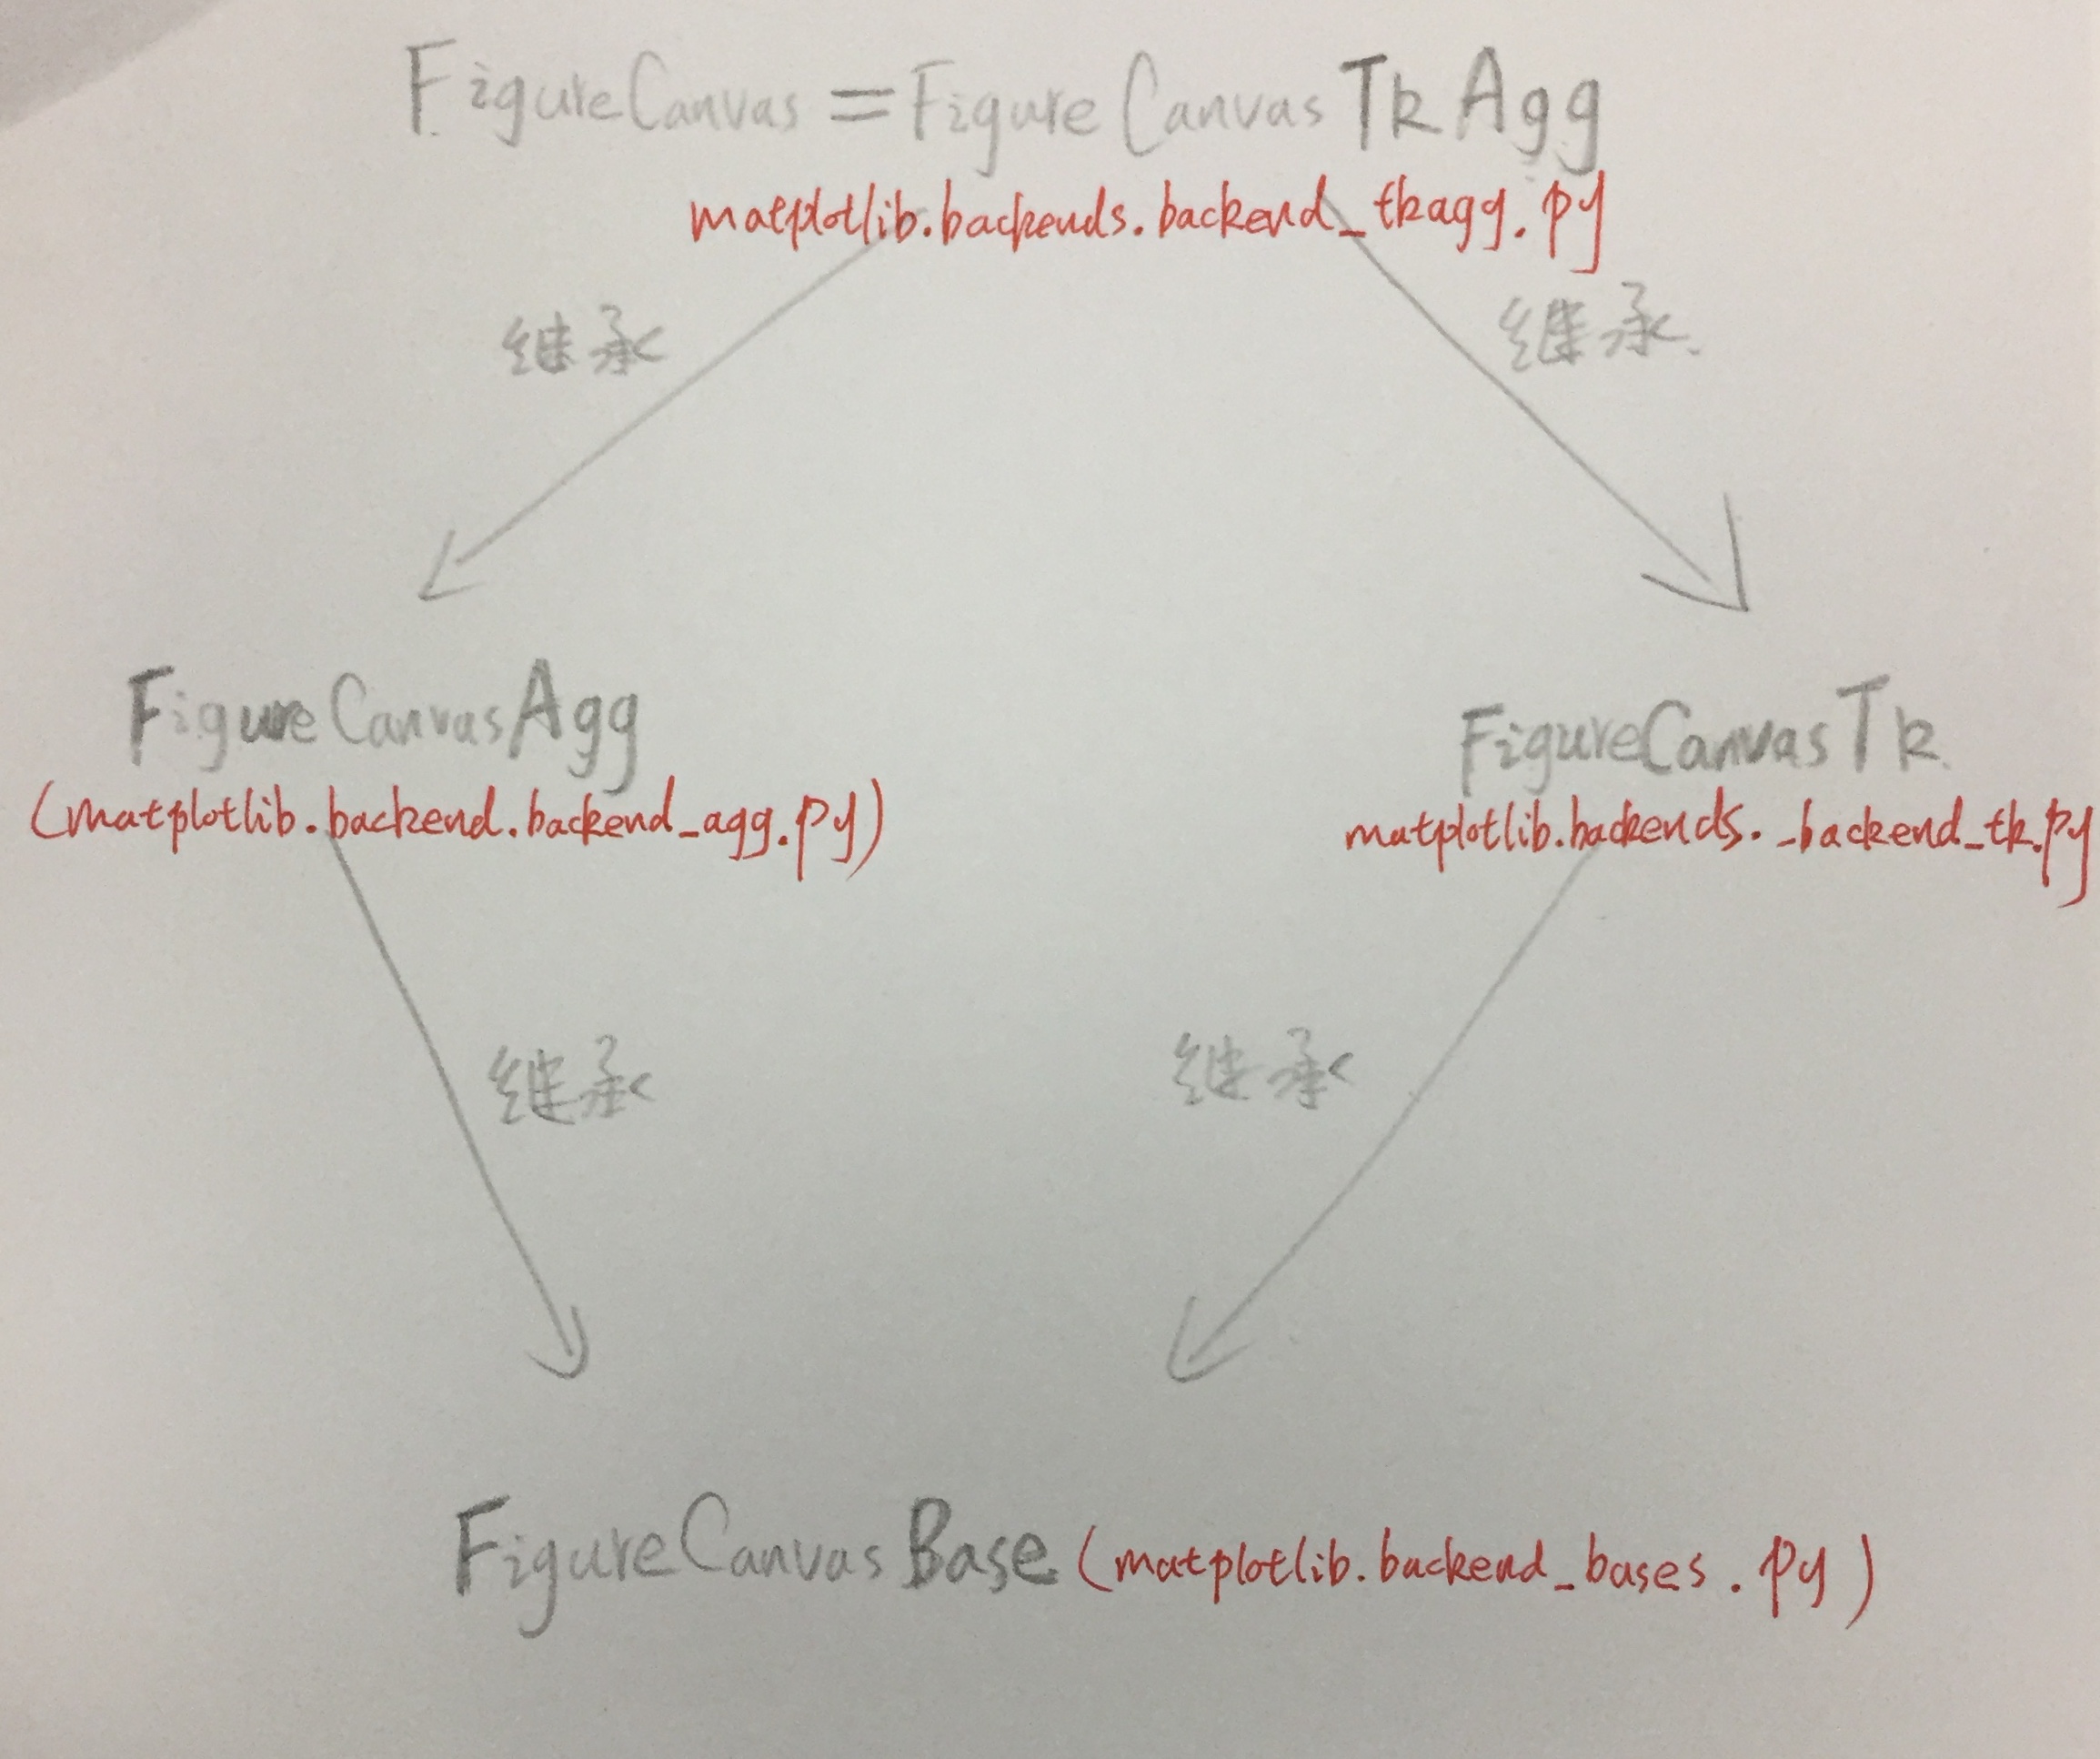 FigureCanvas = FigureCanvasTkAgg
matplotlib.backends.backend_tkagg.py
继承
继承
FigureCanvasAgg
FigureCanvasTk
(matplotlib.backend.backend_agg.py)
matplotlib.backends._backend_tk.py
继承
继承
FigureCanvasBase (matplotlib.backend_bases.py)